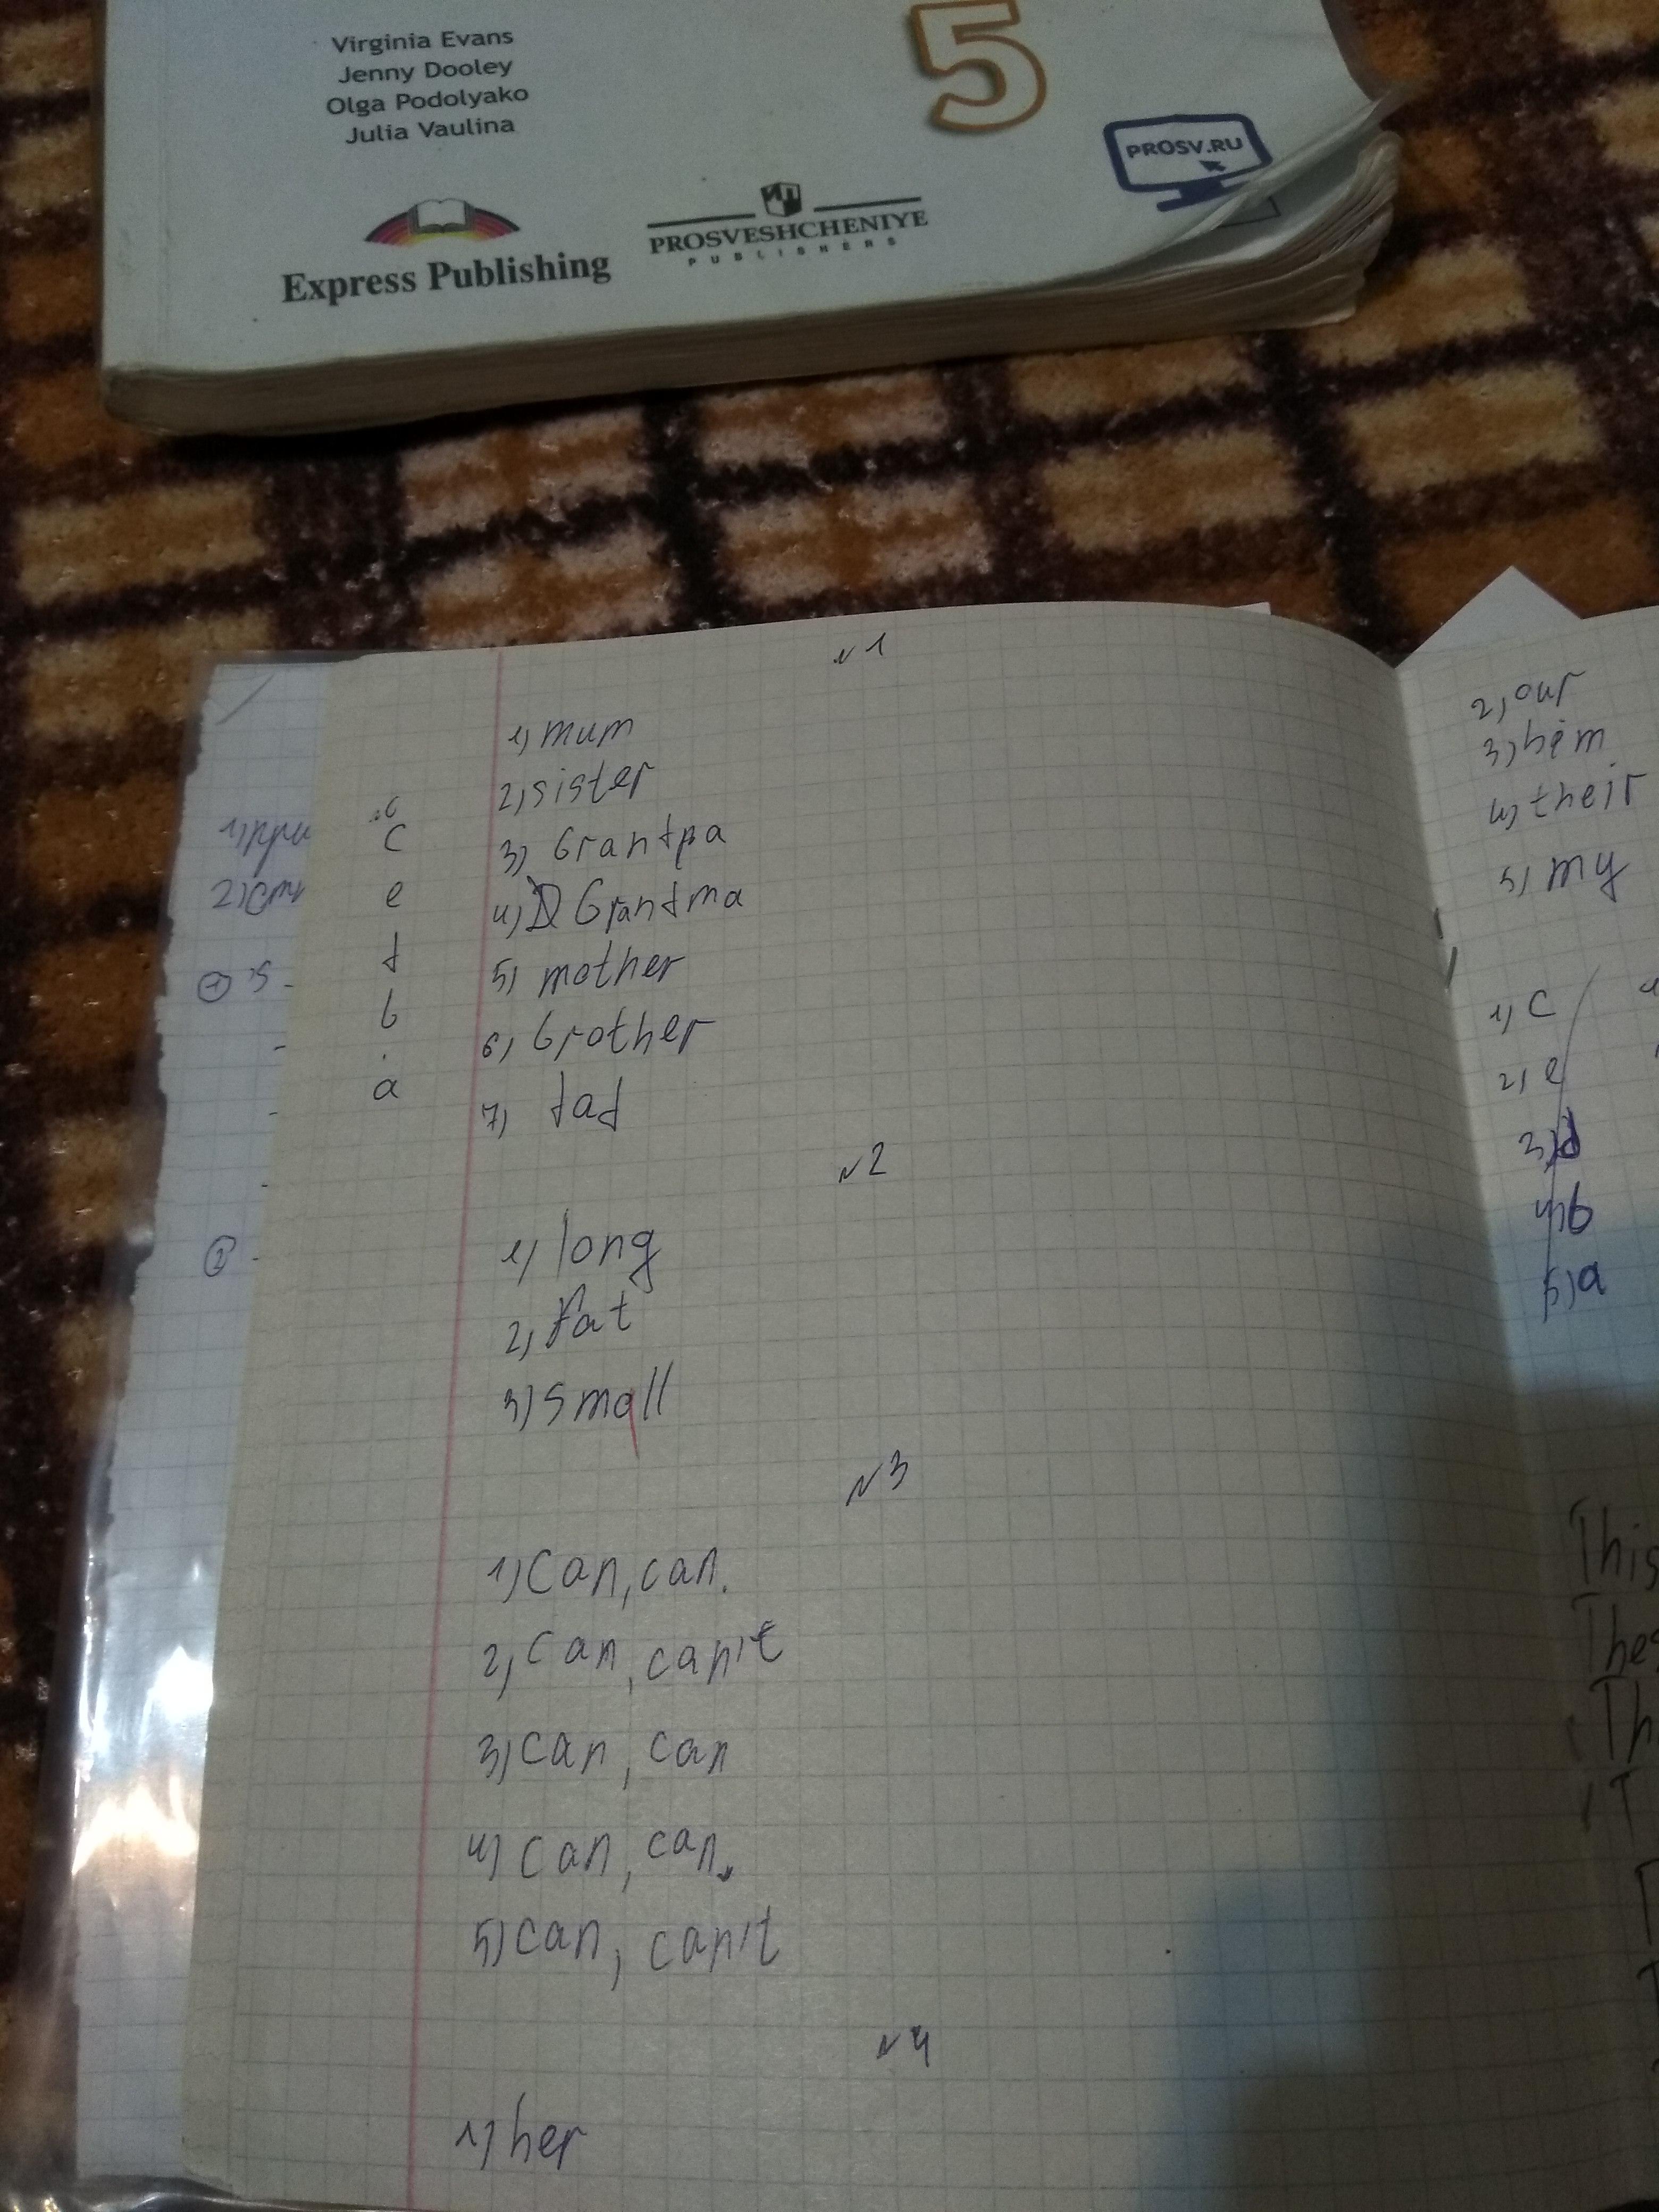 Virginia Evans
Jenny Dooley
Olga Podolyako
Julia Vaulina
5
PROSV.RU
Express Publishing
PROSVESHCHENIYE
PUBLISHERS
№1
1) mum
2) sister
3) Grandpa
4) Grandma
5) mother
6) brother
7) dad
c
e
d
b
a
№2
1) long
2) Fat
3) small
№3
1) Can, can.
2) can, can't
3) can, can
4) can, can.
5) can, can't
№4
1) her
2) our
3) him
4) their
5) my
1) c
2) e
3) d
4) b
5) a
This